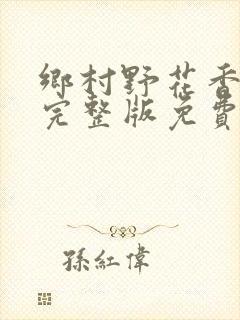 鄉村野花香
完整版免費
孫紅偉